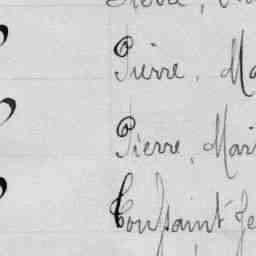 Pierre, Ma
Pierre, Mari
Toussaint Je